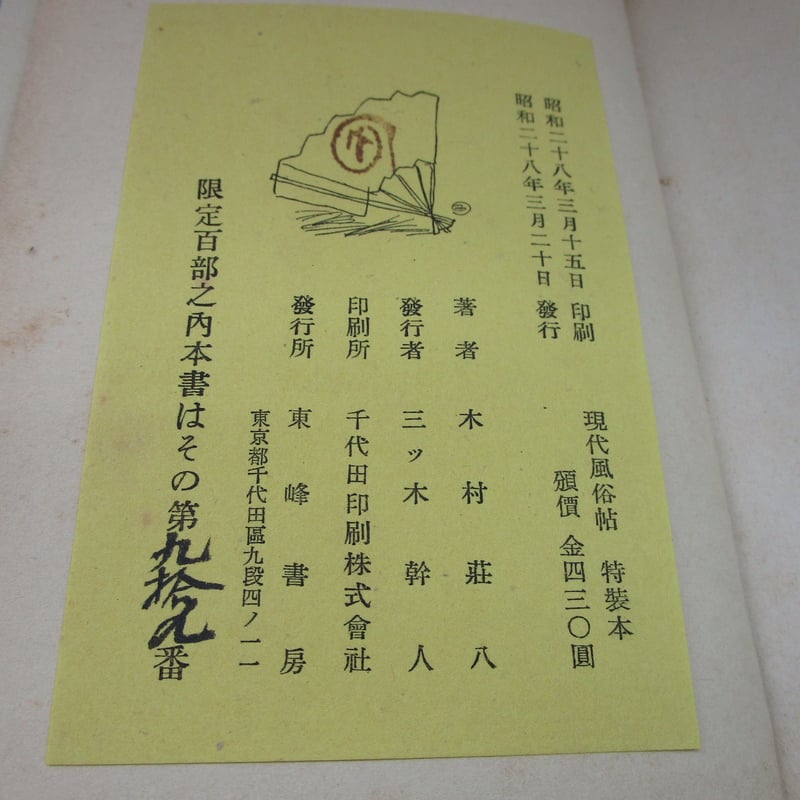 昭和二十八年三月十五日 印刷
昭和二十八年三月二十日 發行
現代風俗帖 特裝本
頒價 金四三〇圓
著者 木村莊八
發行者 三ッ木幹人
印刷所 千代田印刷株式會社
發行所 東峰書房
東京都千代田區九段四ノ一一
限定百部之內本書はその第九拾九番